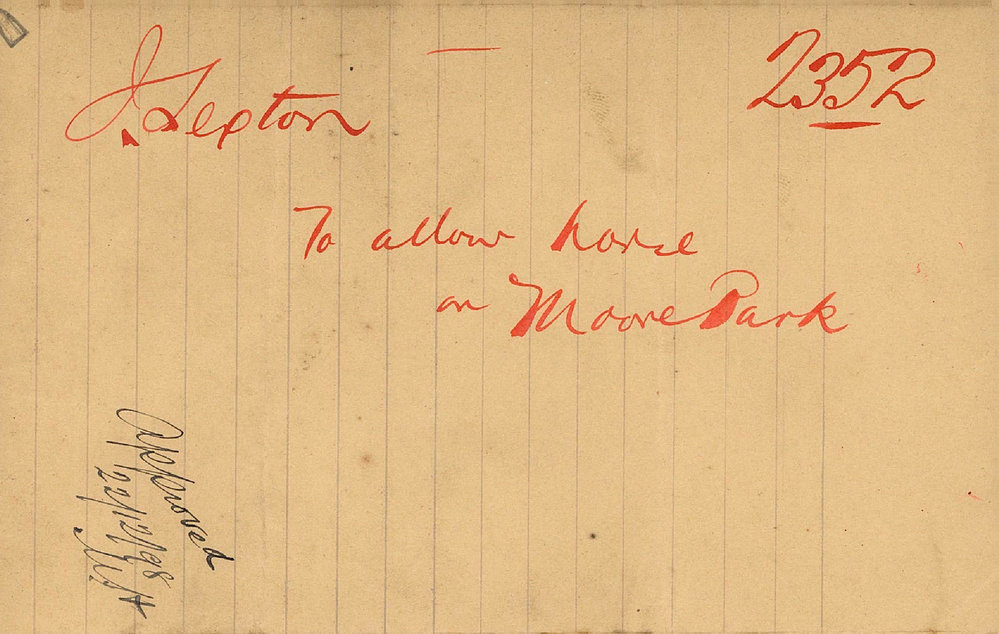 J. Sexton
2352
To allow horse
on Moore Park
Approved
22/12/98